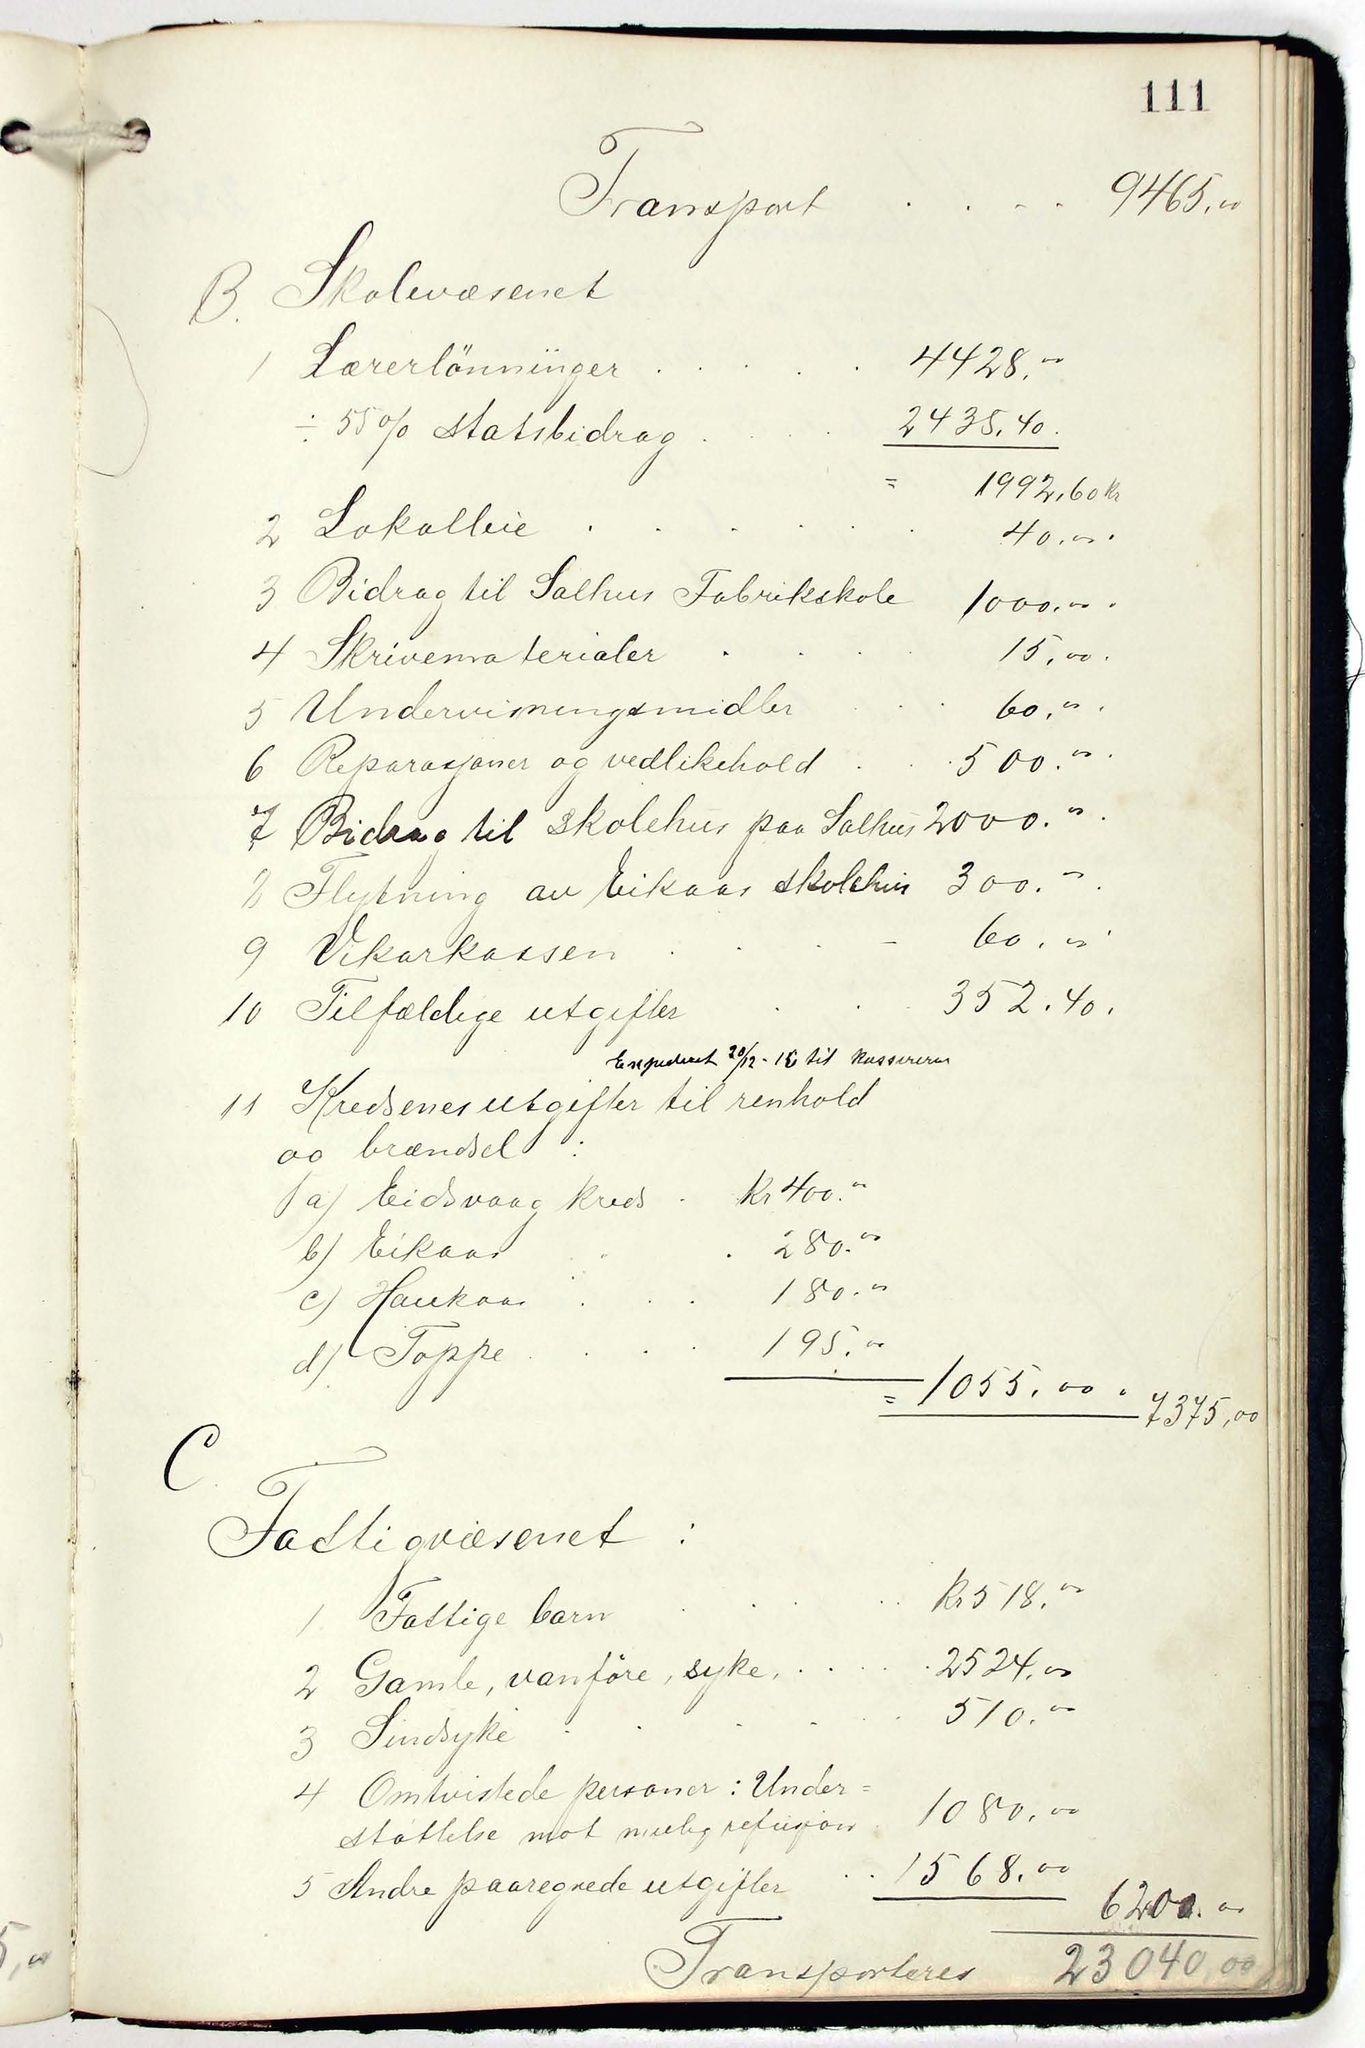 111
Transport . . . . 9465,00
B. Skolevæsenet
1 Lærerlönninger . . . . . 4428,00
÷ 55% statsbidrag . . . . 2435,40.
= 1992,60 kr
2 Lokalleie . . . . . . 40.00.
3 Bidrag til Salhus Fabrikskole 1000.00.
4 Skrivematerialer . . . . 15,00.
5 Undervisningsmidler . . . 60,00.
6 Reparasjoner og vedlikehold . . . 500.00.
7 Bidrag til skolehus paa Salhus 2000.00.
8 Flytning av Eikaas skolehus 300.00.
9 Vikarkassen . . . - 60.00.
10 Tilfældige utgifter . . . 352.40.
Expederet 20/12-15 til kassereren
11 Kredsenes utgifter til renhold
og brændsel :
a) Eidsvaag kreds . Kr 400.00
b) Eikaas . . 280.00
c) Haukaas . . . 180.00
d) Toppe . . . . 195.00
= 1055.00. 7375,00
C.
Fattigvæsenet :
1 Fattige barn . . . . Kr 518.00
2 Gamle, vanföre, syke, . . . . . 2524,00
3 Sindsyke . . . . . 510.00
4 Omtvistede personer : Under=
støttelse mot mulig refusjon . 1080,00
5 Andre paaregnede utgifter . . 1568.00
6200.00
Transporteres 23040,00
5,00